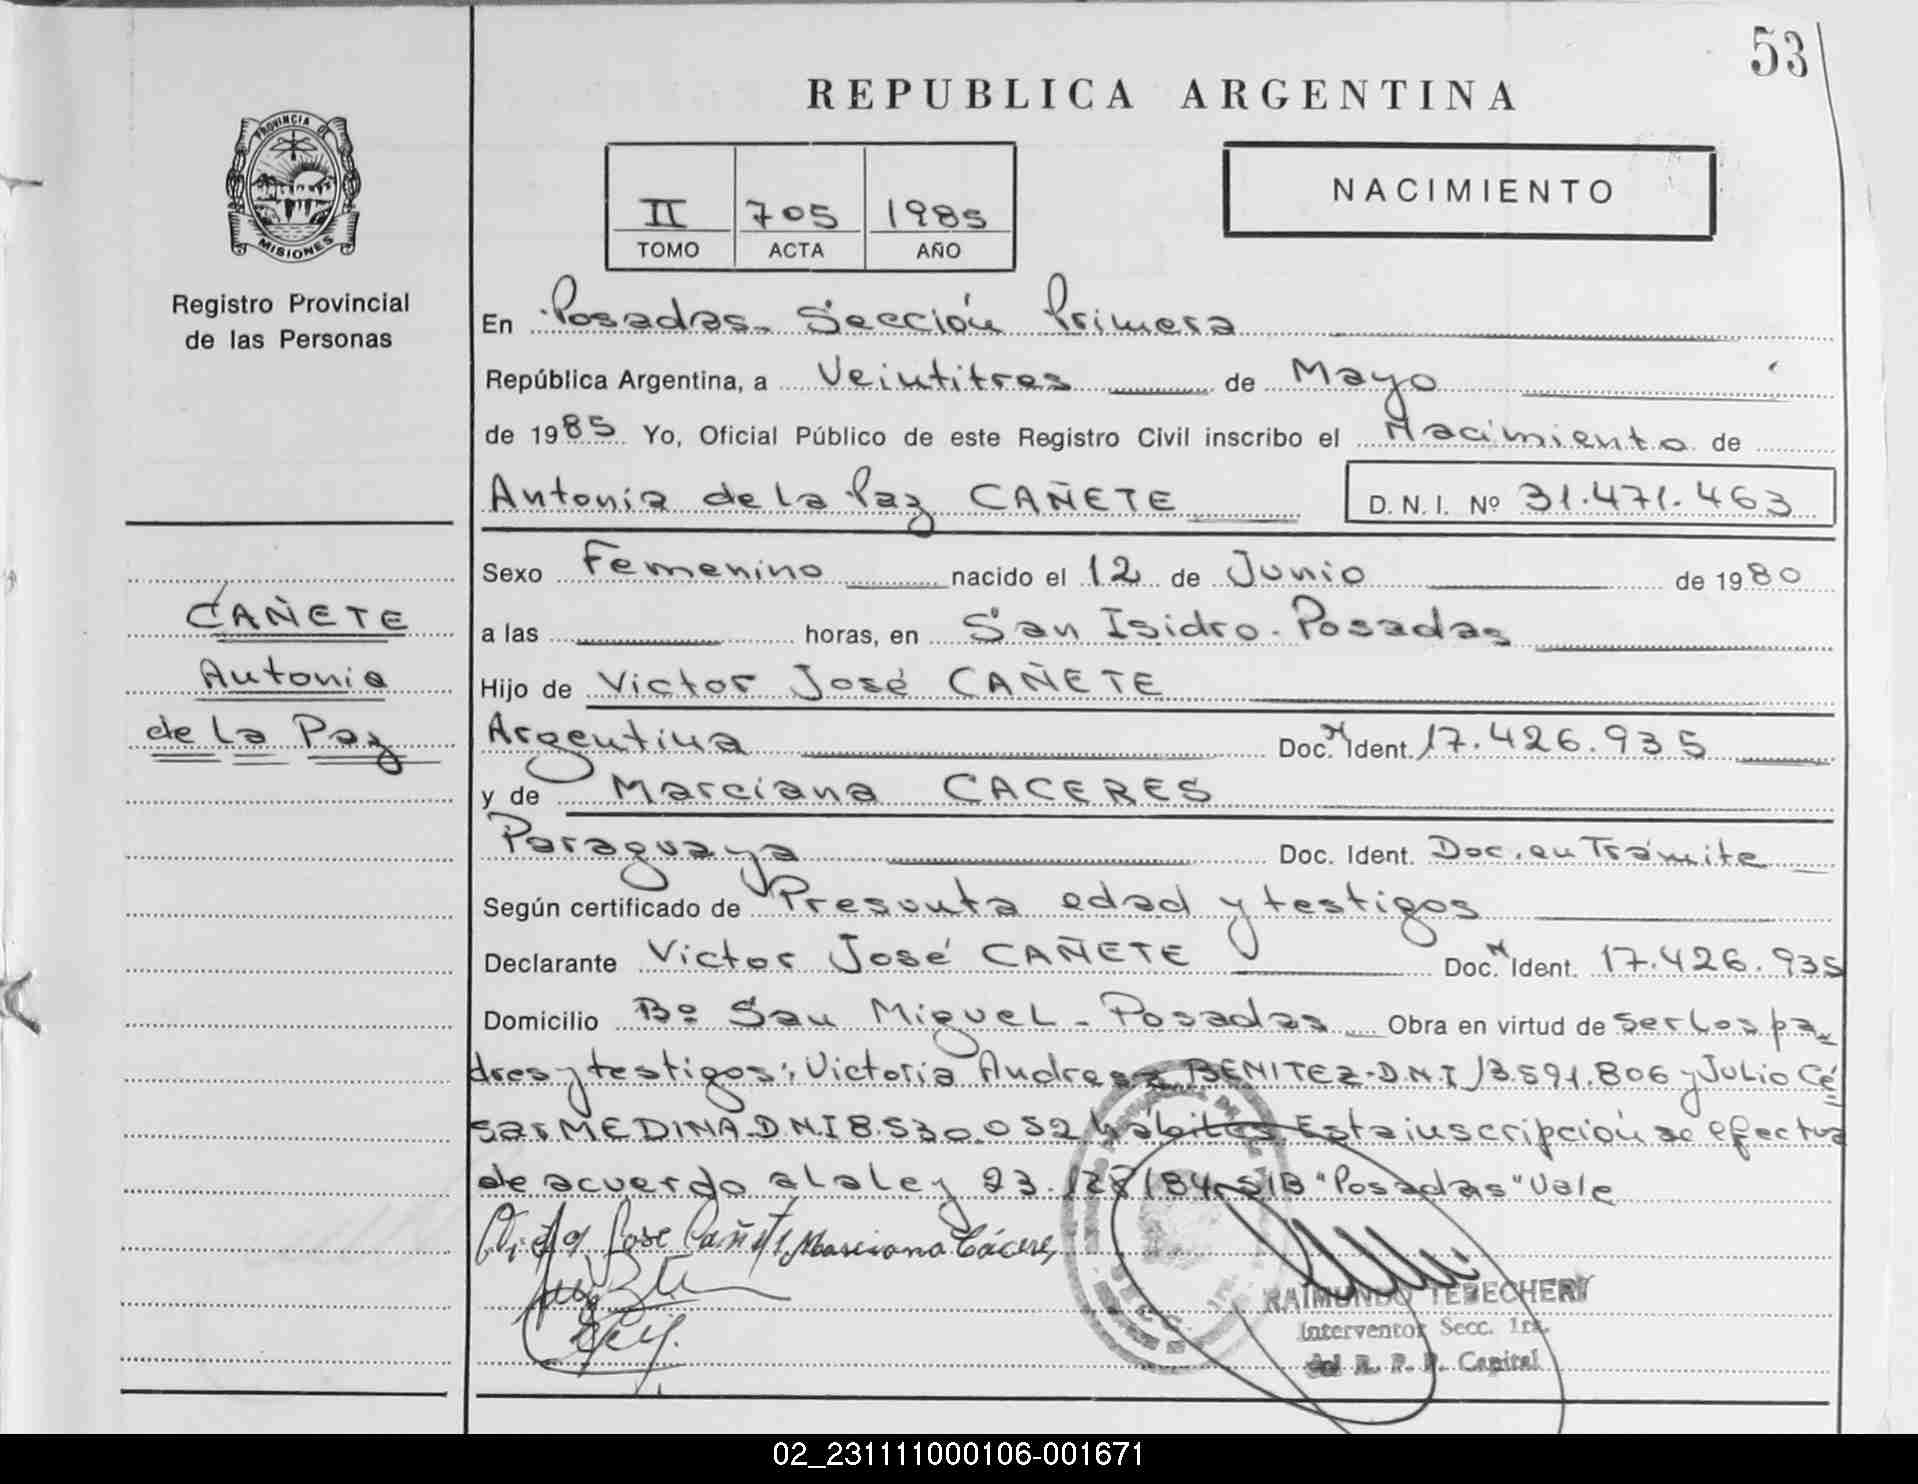 53
REPUBLICA ARGENTINA
PROVINCIA DE
MISIONES
Registro Provincial
de las Personas
II 705 1985
TOMO ACTA AÑO
NACIMIENTO
En Posadas. Sección Primera
República Argentina, a Veintitres de Mayo
de 1985 Yo, Oficial Público de este Registro Civil inscribo el Nacimiento de
Antonia de la Paz CAÑETE D. N. I. Nº 31.471.463
CAÑETE
Antonia
de la Paz
Sexo Femenino nacido el 12 de Junio de 1980
a las horas, en San Isidro. Posadas
Hijo de Victor José CAÑETE
Argentina Doc. N Ident. 17.426.935
y de Marciana CACERES
Paraguaya Doc. Ident. Doc. en Trámite
Según certificado de Presunta edad y testigos
Declarante Victor José CAÑETE Doc. N Ident. 17.426.935
Domicilio Bº San Miguel - Posadas Obra en virtud de ser los pa
dres y testigos: Victoria Andrea BENITEZ-D.N.I 13.591.806 y Julio Cé
sar MEDINA.D.N.I 8.530.052 hábiles Esta inscripción se efectua
de acuerdo a la ley 23.128/84 S/B "Posadas" Vale
Victor Jose Cañete Marciana Cáceres
RAIMUNDO TEBECHERY
Interventor Secc. 1ra.
del R. P. P. Capital
02_231111000106-001671